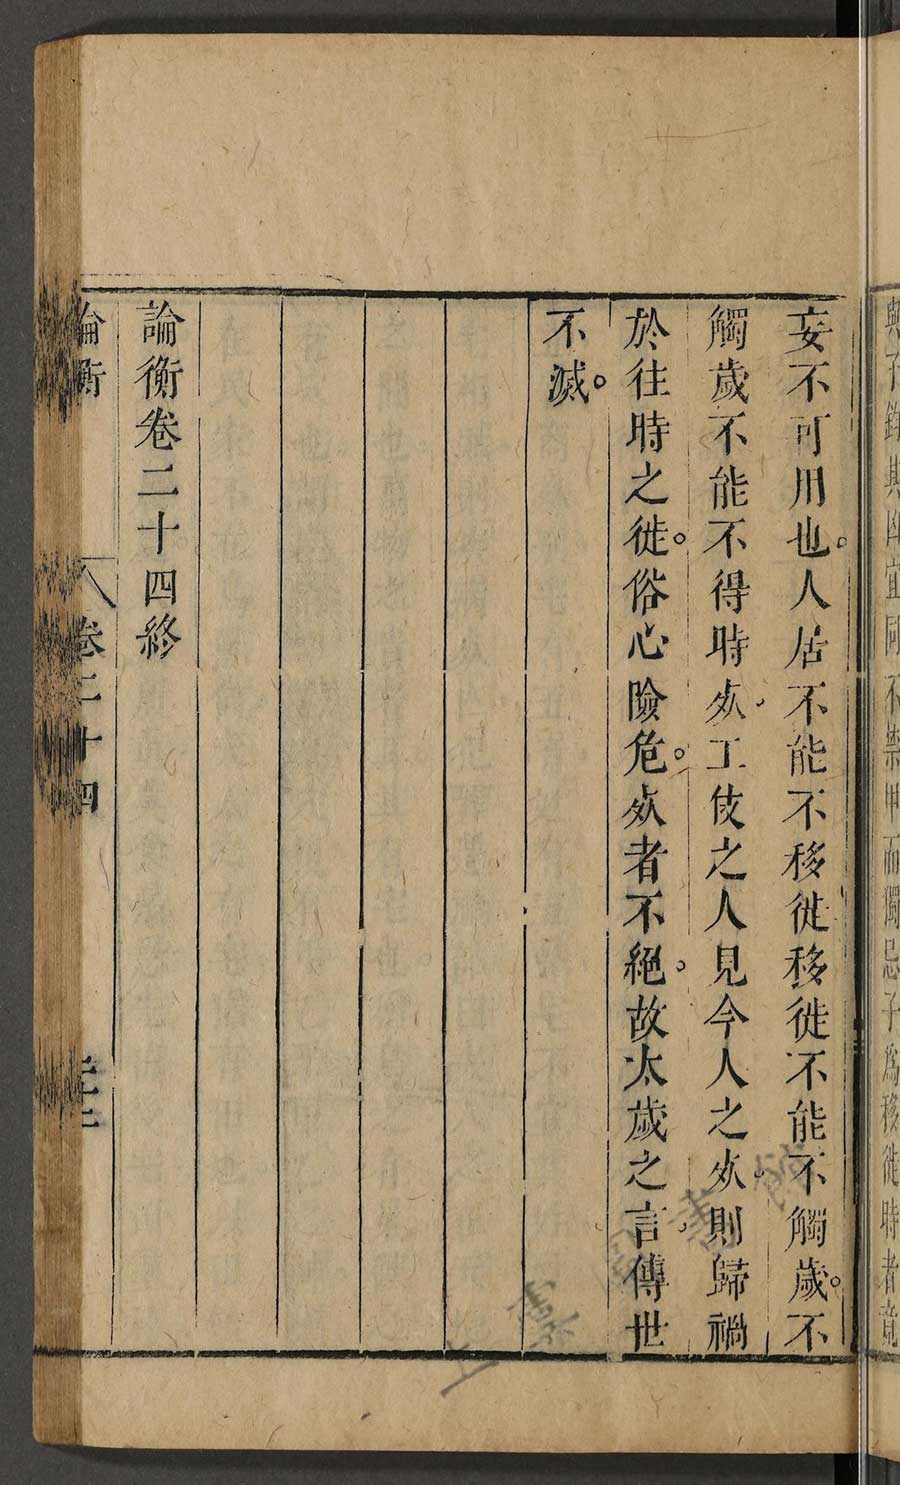 與子鈞其凶宜同不禁甲而獨忌子為移徙時者竟
妄不可用也。人居不能不移徙移徙不能不觸歲。不
觸歲不能不得時㱙。工伎之人見今人之㱙。則歸禍
於往時之徙。俗心險危。㱙者不絕。故太歲之言。傳世
不滅。
論衡卷二十四終
論衡 卷二十四